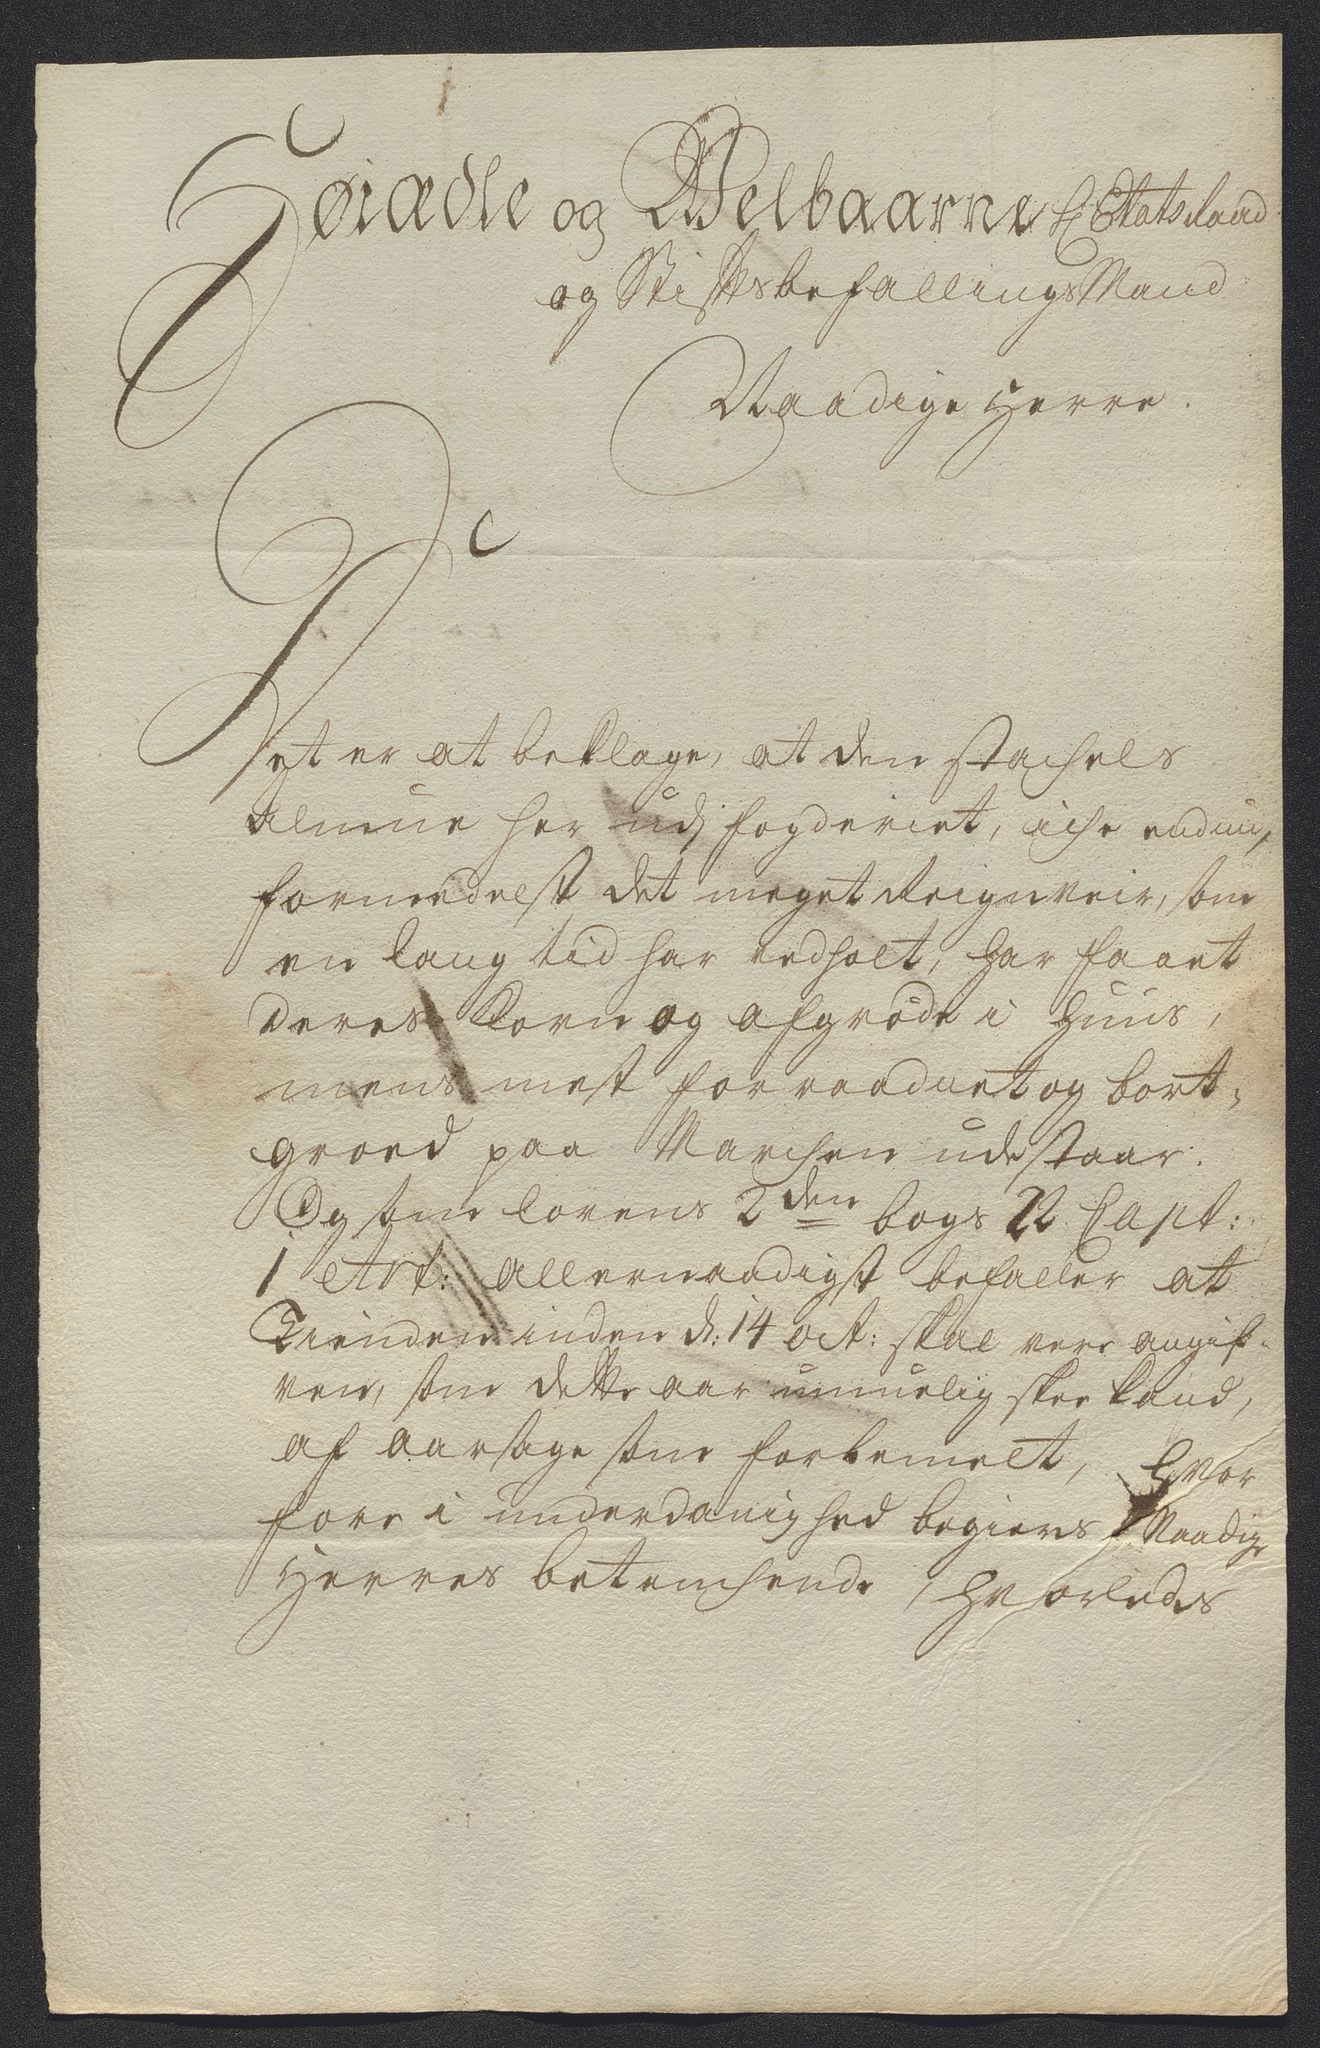 Høiædle og Welbaarne Hr Etats Raad
og Stiftsbefallings Mand
Naadige Herre.
Det er at beklage, at den stachels
Almue her udj fogderiet, iche endnu,
formedelst det meget Reignveir, som
en lang tid har vedholt, har faaet
deres Korn og afgrøde i Huus,
mens mest forraadnet og bort-
groed paa Marchen udestaar.
Og som lovens 2den bogs 22 Capt:
1 Art: allernaadigst befaller at
Tienden inden d: 14 oct: skal vere angif-
ven, som dette aar umuelig skee kand,
af aarsage som forbemelt, hvor
fore i underdanighed begieres Naadige
Herres betenchende, hvorleds